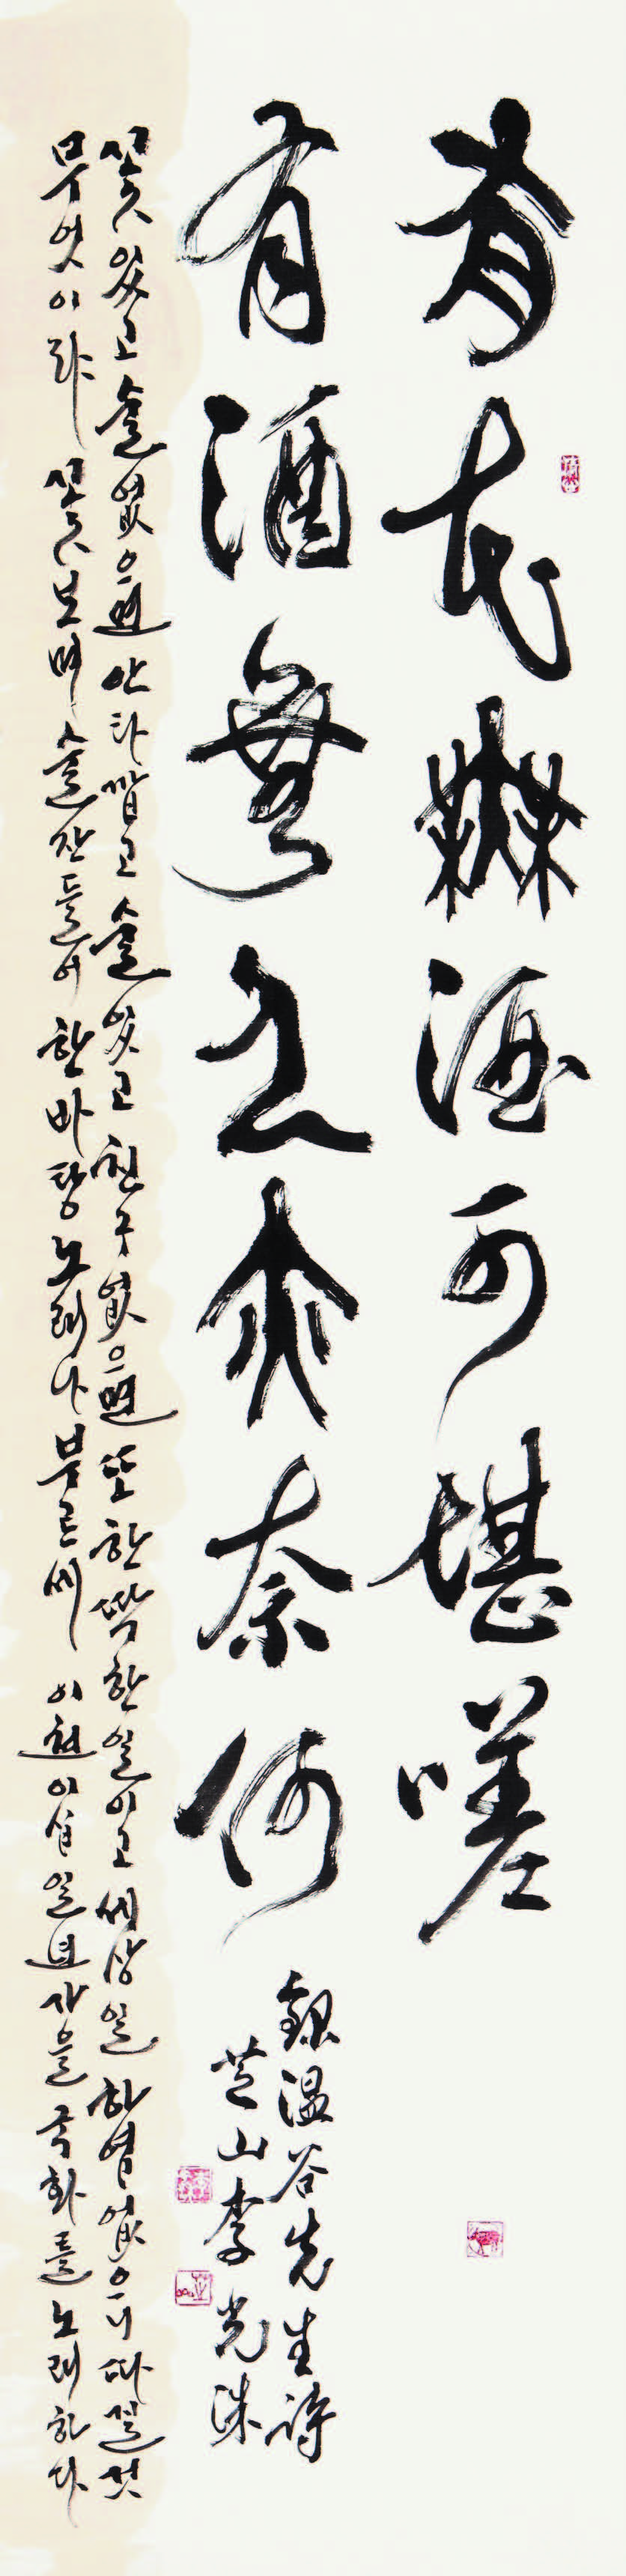 有花無酒可堪嗟
有酒無人亦奈何
錄溫谷先生詩
芝山李光洙
꽃 있고 술 없으면 안타깝고 술 있고 친구 없으면 또한 딱한 일이고 세상일 하염없으니 따질 것
무엇이랴 꽃 보며 술잔 들어 한바탕 노래나 부르세 이천이십일년 가을 국화를 노래하다